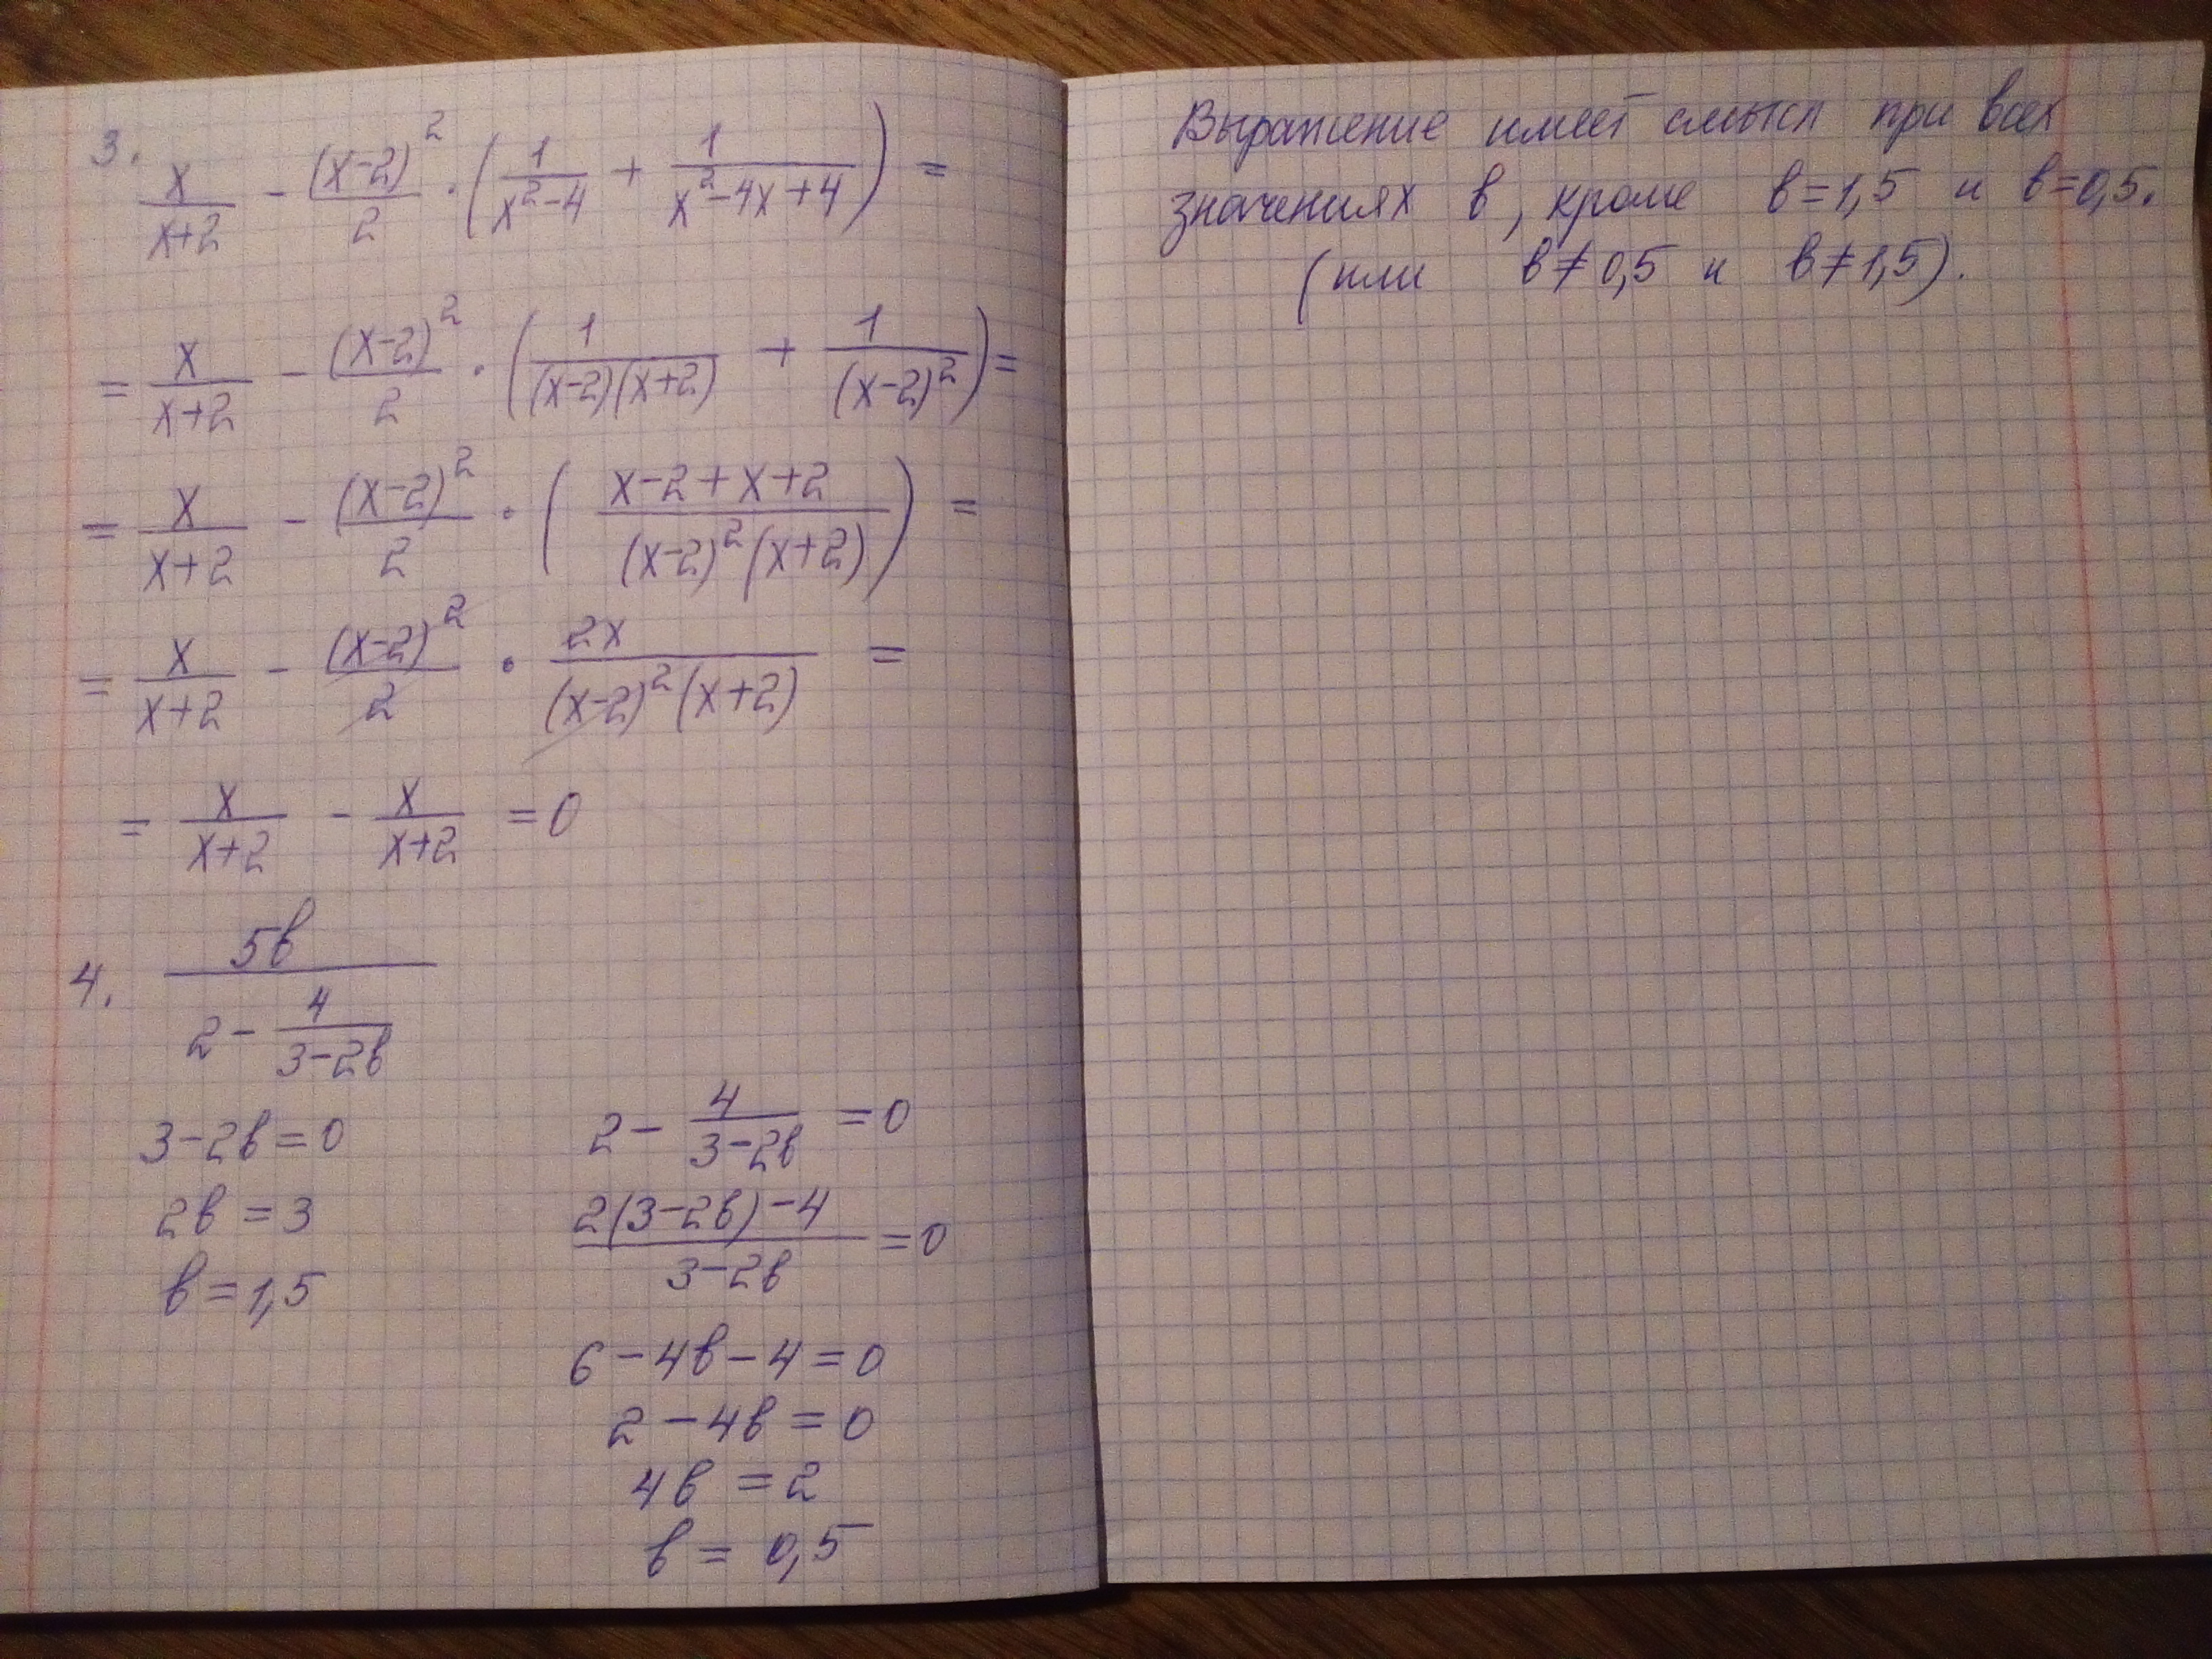 3. x/(x+2) - (x-2)²/2 · (1/(x²-4) + 1/(x²-4x+4)) =
= x/(x+2) - (x-2)²/2 · (1/((x-2)(x+2)) + 1/(x-2)²) =
= x/(x+2) - (x-2)²/2 · ((x-2+x+2)/((x-2)²(x+2))) =
= x/(x+2) - (x-2)²/2 · 2x/((x-2)²(x+2)) =
= x/(x+2) - x/(x+2) = 0
4. 5в/(2 - 4/(3-2в))
3-2в=0
2в=3
в=1,5
2 - 4/(3-2в) = 0
(2(3-2в)-4)/(3-2в) = 0
6-4в-4=0
2-4в=0
4в=2
в=0,5
Выражение имеет смысл при всех
значениях в, кроме в=1,5 и в=0,5.
(или в≠0,5 и в≠1,5).